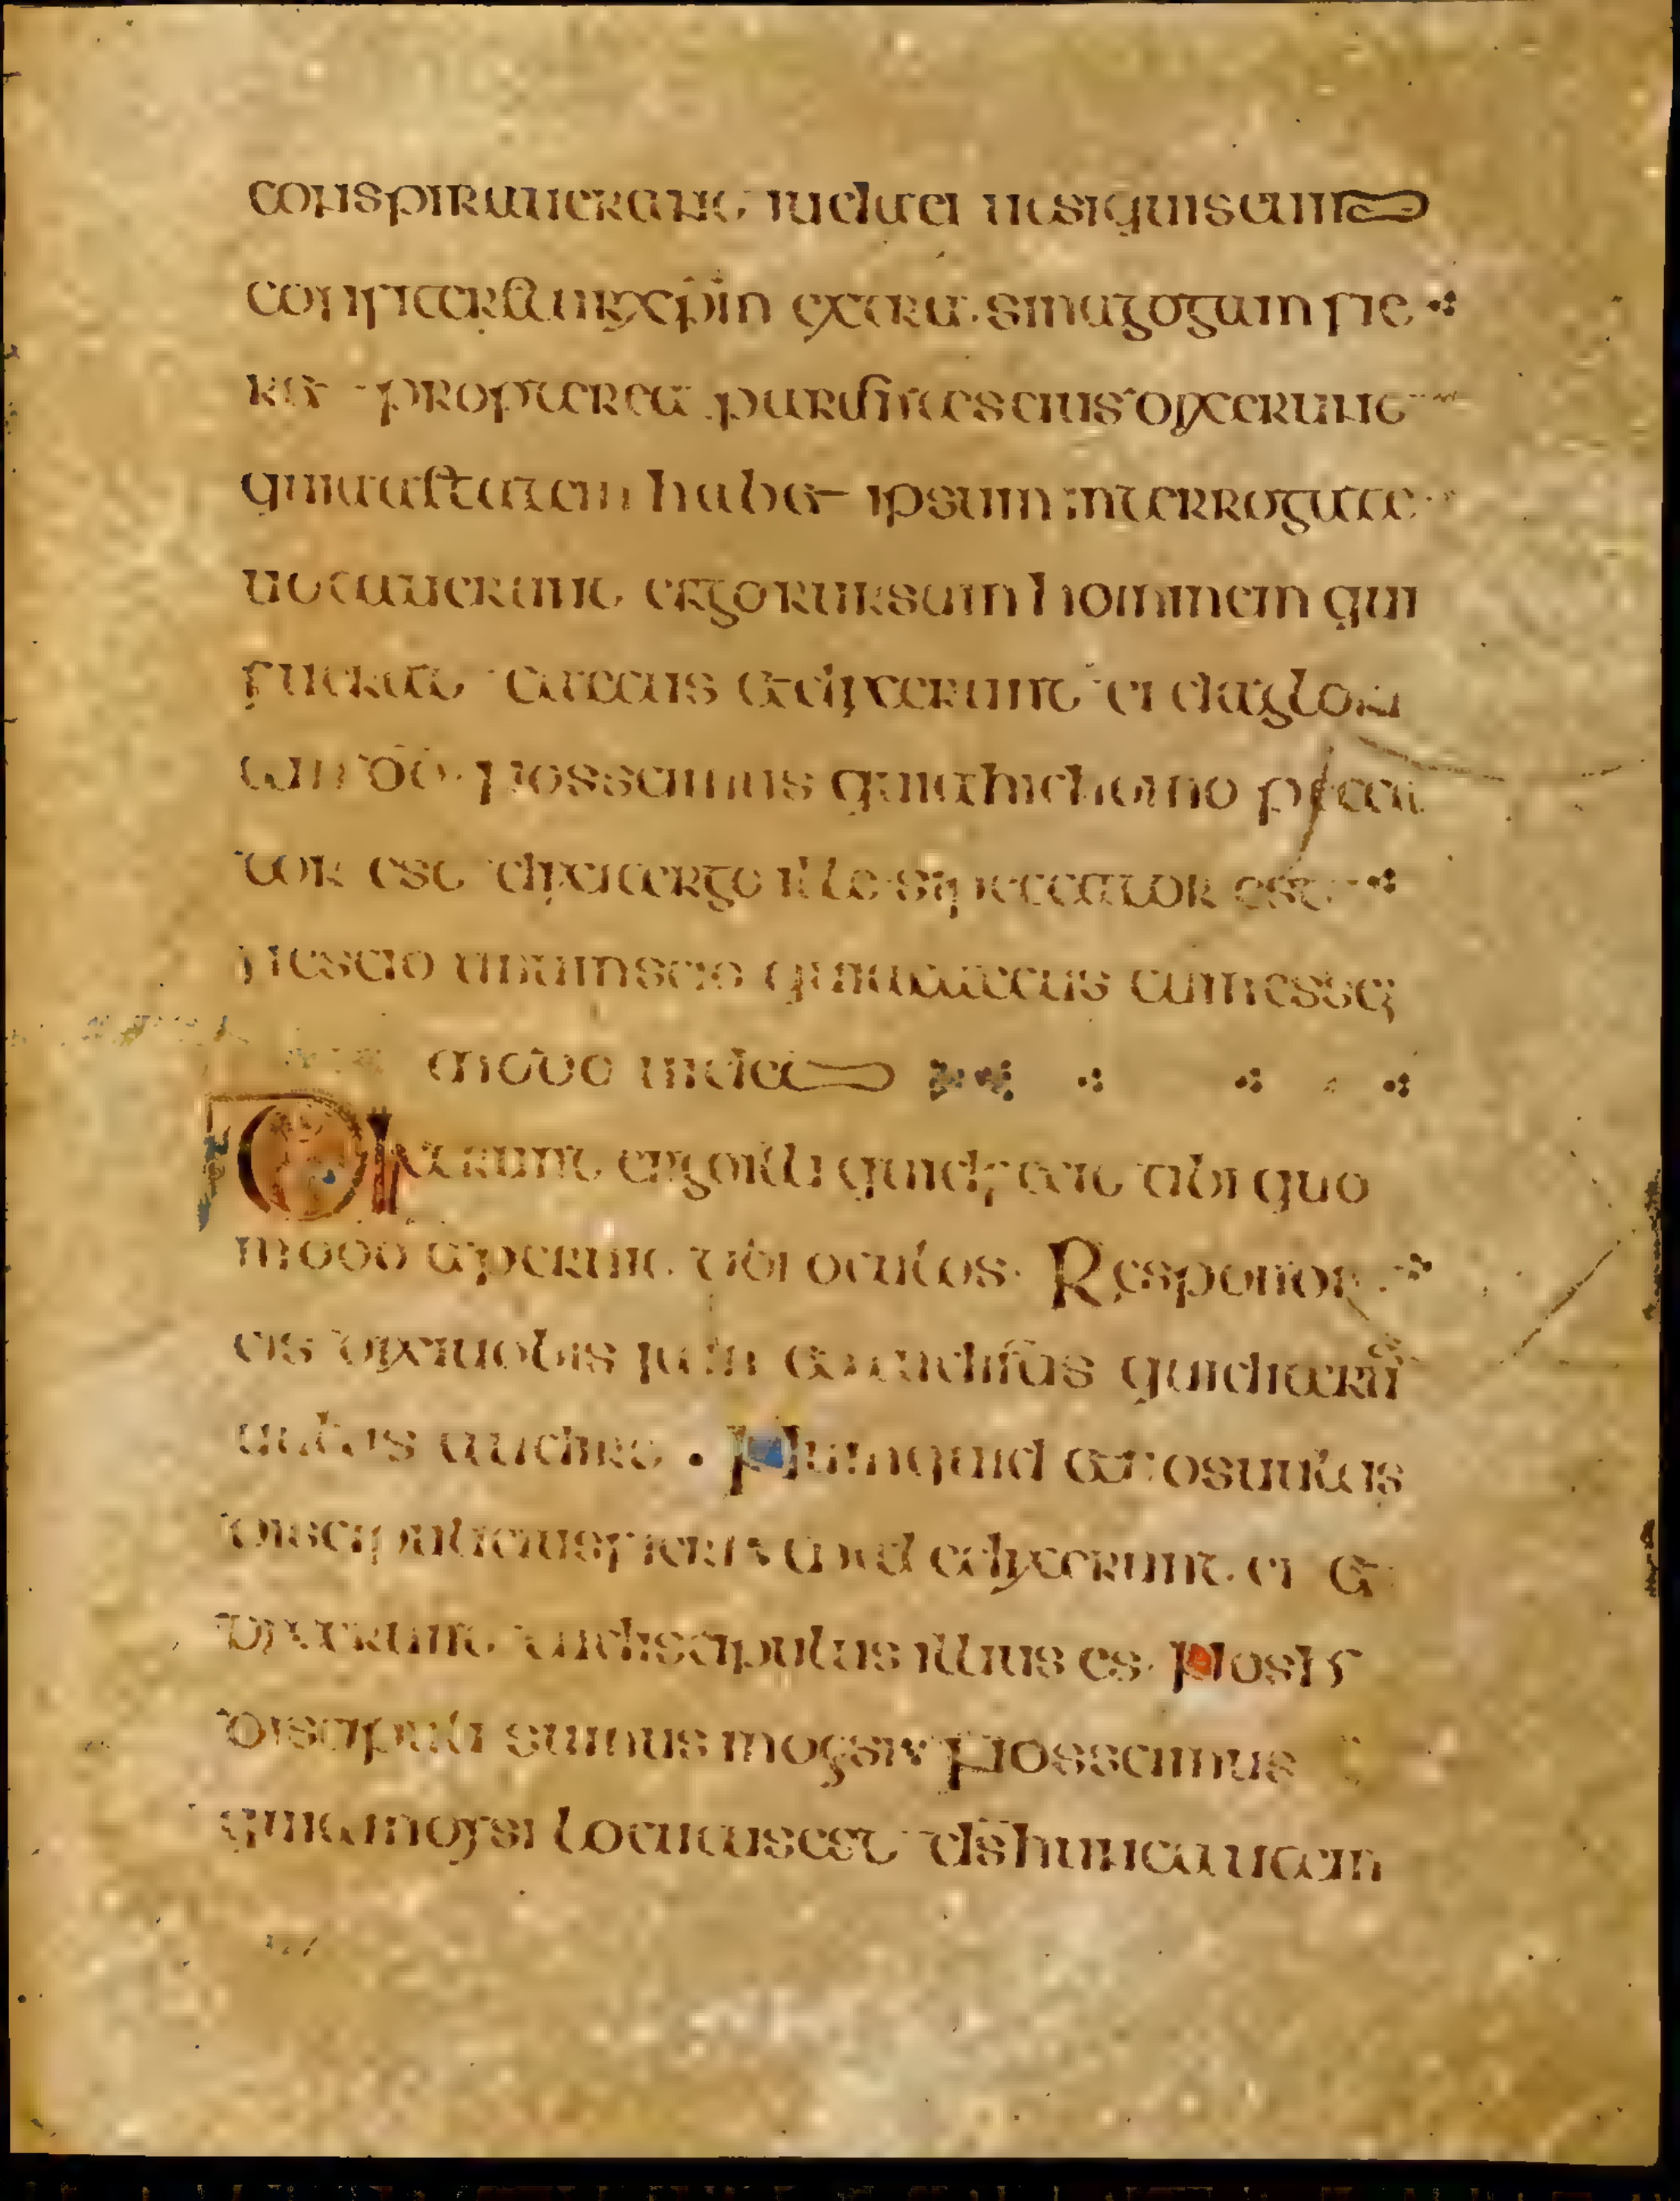 conspirauerant iudaei ut siquis eum
confiteretur xp̄m extra sinagogam fie
ret propterea parentes eius dixerunt
quia aetatem habet ipsum interrogate
uocauerunt ergo rursum hominem qui
fuerat caecus et dixerunt ei da glori
am dō nos scimus quia hic homo pecca
tor est dixit ergo ille si peccator est
nescio unum scio quia caecus cum essem
modo uideo
Dixerunt ergo illi quid fecit tibi quo
modo aperuit tibi oculos Respondit
eis dixi uobis iam et audistis quid iterū
uultis audire. Numquid et uos uultis
discipuli eius fieri maledixerunt ei et
dixerunt tu discipulus illius es. Nos
discipuli sumus moysi Nos scimus
quia moysi locutus est d̄s hunc autem